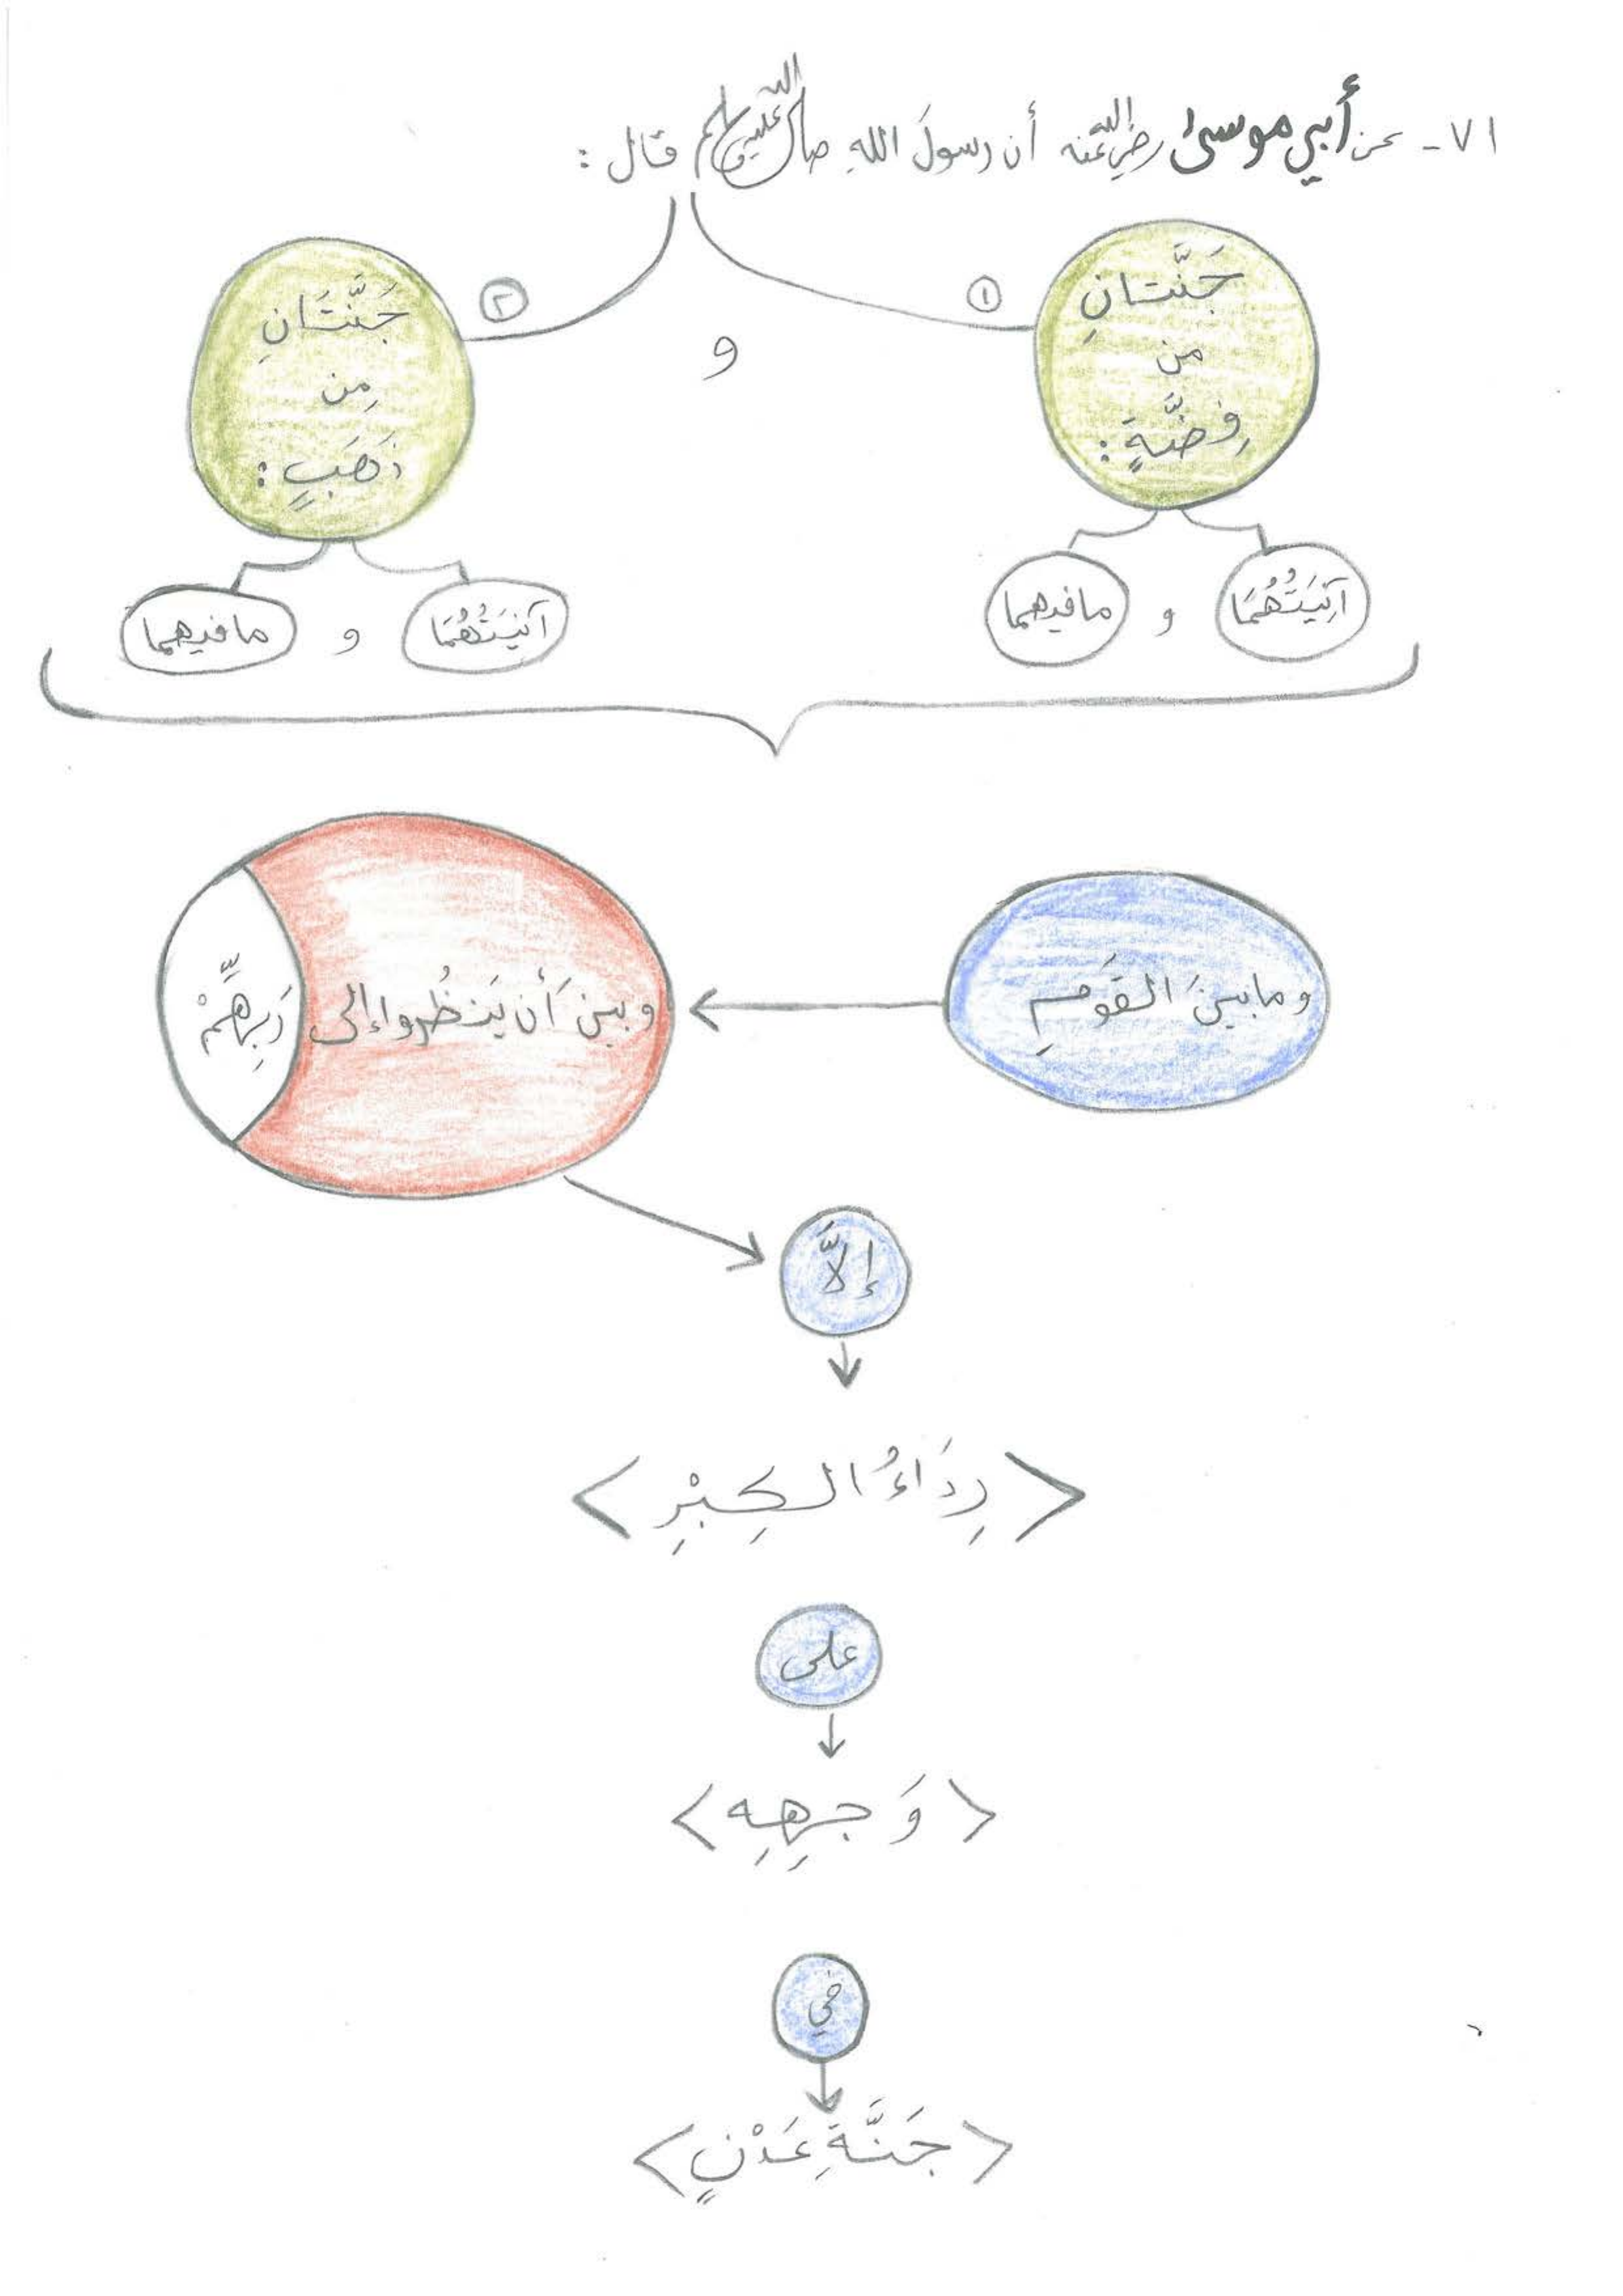 ٧١- عن أبي موسى رضي الله عنه أن رسولَ اللهِ صلى الله عليه وسلم قال :
١
جَنَّتانِ
من
فِضَّةٍ :
آنِيَتُهُمَا
و
مافيهما
و
٢
جَنَّتَانِ
مِن
ذَهَبٍ :
آنيَتُهُمَا
و
مافيهما
ومابينَ القَومِ
وبينَ أن يَنظُروا إلى رَبِّهِمْ
إلاَّ
< رِدَاءُ الكِبْرِ >
على
< وَجهِهِ >
في
< جَنَّةِ عَدْنٍ >